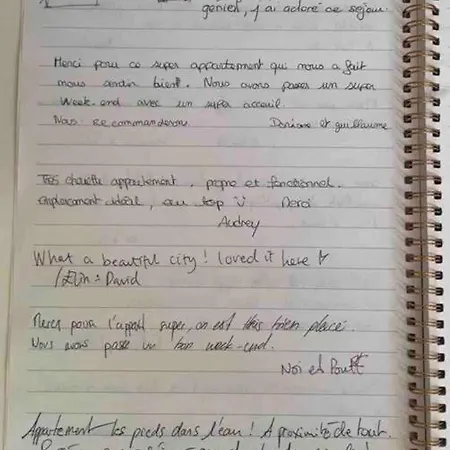 génial, j'ai adoré ce séjour.
Merci pour ce super appartement qui nous a fait
nous sentir bien. Nous avons passer un super
Week-end avec un super acceuil.
Nous recommanderons. Doriane et guillaume
Très chouette appartement, propre et fonctionnel.
emplacement idéal, au top Merci
Audrey
What a beautiful city! loved it here
David
Merci pour l'appart super, on est très bien placé.
Nous avons passé un bon week-end.
Noi et
Appartement les pieds dans l'eau! A proximité de tout.